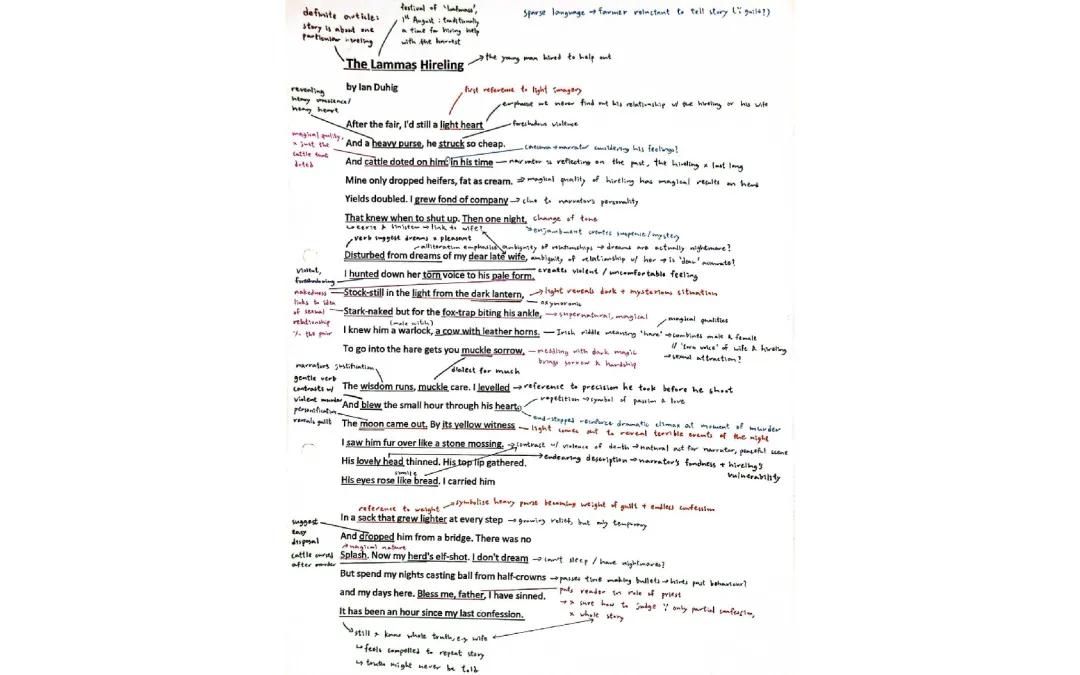 definite article:
story is about one
particular hireling
festival of 'Lammas',
1st August: traditionally
a time for hiring help
with the harvest
sparse language → farmer reluctant to tell story (∵ guilt?)
The Lammas Hireling
→ the young man hired to help out
by Ian Duhig
revealing
heavy conscience/
heavy heart
first reference to light imagery
emphasise we never find out his relationship w/ the hireling or his wife
After the fair, I'd still a light heart
foreshadows violence
And a heavy purse, he struck so cheap.
magical quality,
x just the
cattle that
doted
caesura → narrator considering his feelings?
And cattle doted on him: in his time
narrator is reflecting on the past, the hireling x last long
Mine only dropped heifers, fat as cream.
→ magical quality of hireling has magical results on herd
Yields doubled. I grew fond of company
→ clue to narrator's personality
That knew when to shut up. Then one night,
change of tone
↳ eerie & sinister → link to wife?
↳ enjambment creates suspense/mystery
verb suggest dreams x pleasant
alliteration emphasises ambiguity of relationships → dreams are actually nightmares?
Disturbed from dreams of my dear late wife,
ambiguity of relationship w/ her → is 'dear' accurate?
violent,
foreshadowing
I hunted down her torn voice to his pale form.
creates violent / uncomfortable feeling
nakedness
links to idea
of sexual
relationship
b/w the pair
Stock-still in the light from the dark lantern,
→ light reveals dark + mysterious situation
oxymoronic
Stark-naked but for the fox-trap biting his ankle,
→ supernatural, magical
(male witch)
magical qualities
I knew him a warlock, a cow with leather horns.
Irish riddle meaning 'hare' → combines male & female
// 'torn voice' of wife & hireling
→ sexual attraction?
To go into the hare gets you muckle sorrow,
→ meddling with dark magic
brings sorrow & hardship
narrators justification
dialect for much
The wisdom runs, muckle care. I levelled
→ reference to precision he took before he shoot
gentle verb
contrasts w/
violent murder
And blew the small hour through his heart.
repetition → symbol of passion & love
end-stopped reinforce dramatic climax at moment of murder
personification
reveals guilt
The moon came out. By its yellow witness
light comes out to reveal terrible events of the night
I saw him fur over like a stone mossing.
→ contrast w/ violence of death → natural act for narrator, peaceful scene
His lovely head thinned. His top lip gathered.
→ endearing description → narrator's fondness + hireling's
vulnerability
simile
His eyes rose like bread. I carried him
reference to weight
→ symbolise heavy purse becoming weight of guilt + endless confession
In a sack that grew lighter at every step
→ growing relief, but only temporary
suggest
easy
disposal
And dropped him from a bridge. There was no
→ magical nature
cattle cursed
after murder
Splash. Now my herd's elf-shot. I don't dream
→ can't sleep / have nightmares?
But spend my nights casting ball from half-crowns
→ passes time making bullets → hints past behaviour?
and my days here. Bless me, father, I have sinned.
puts reader in role of priest
→ x sure how to judge ∵ only partial confession,
x whole story
It has been an hour since my last confession.
still x know whole truth, e.g. wife
↳ feels compelled to repeat story
↳ truth might never be told